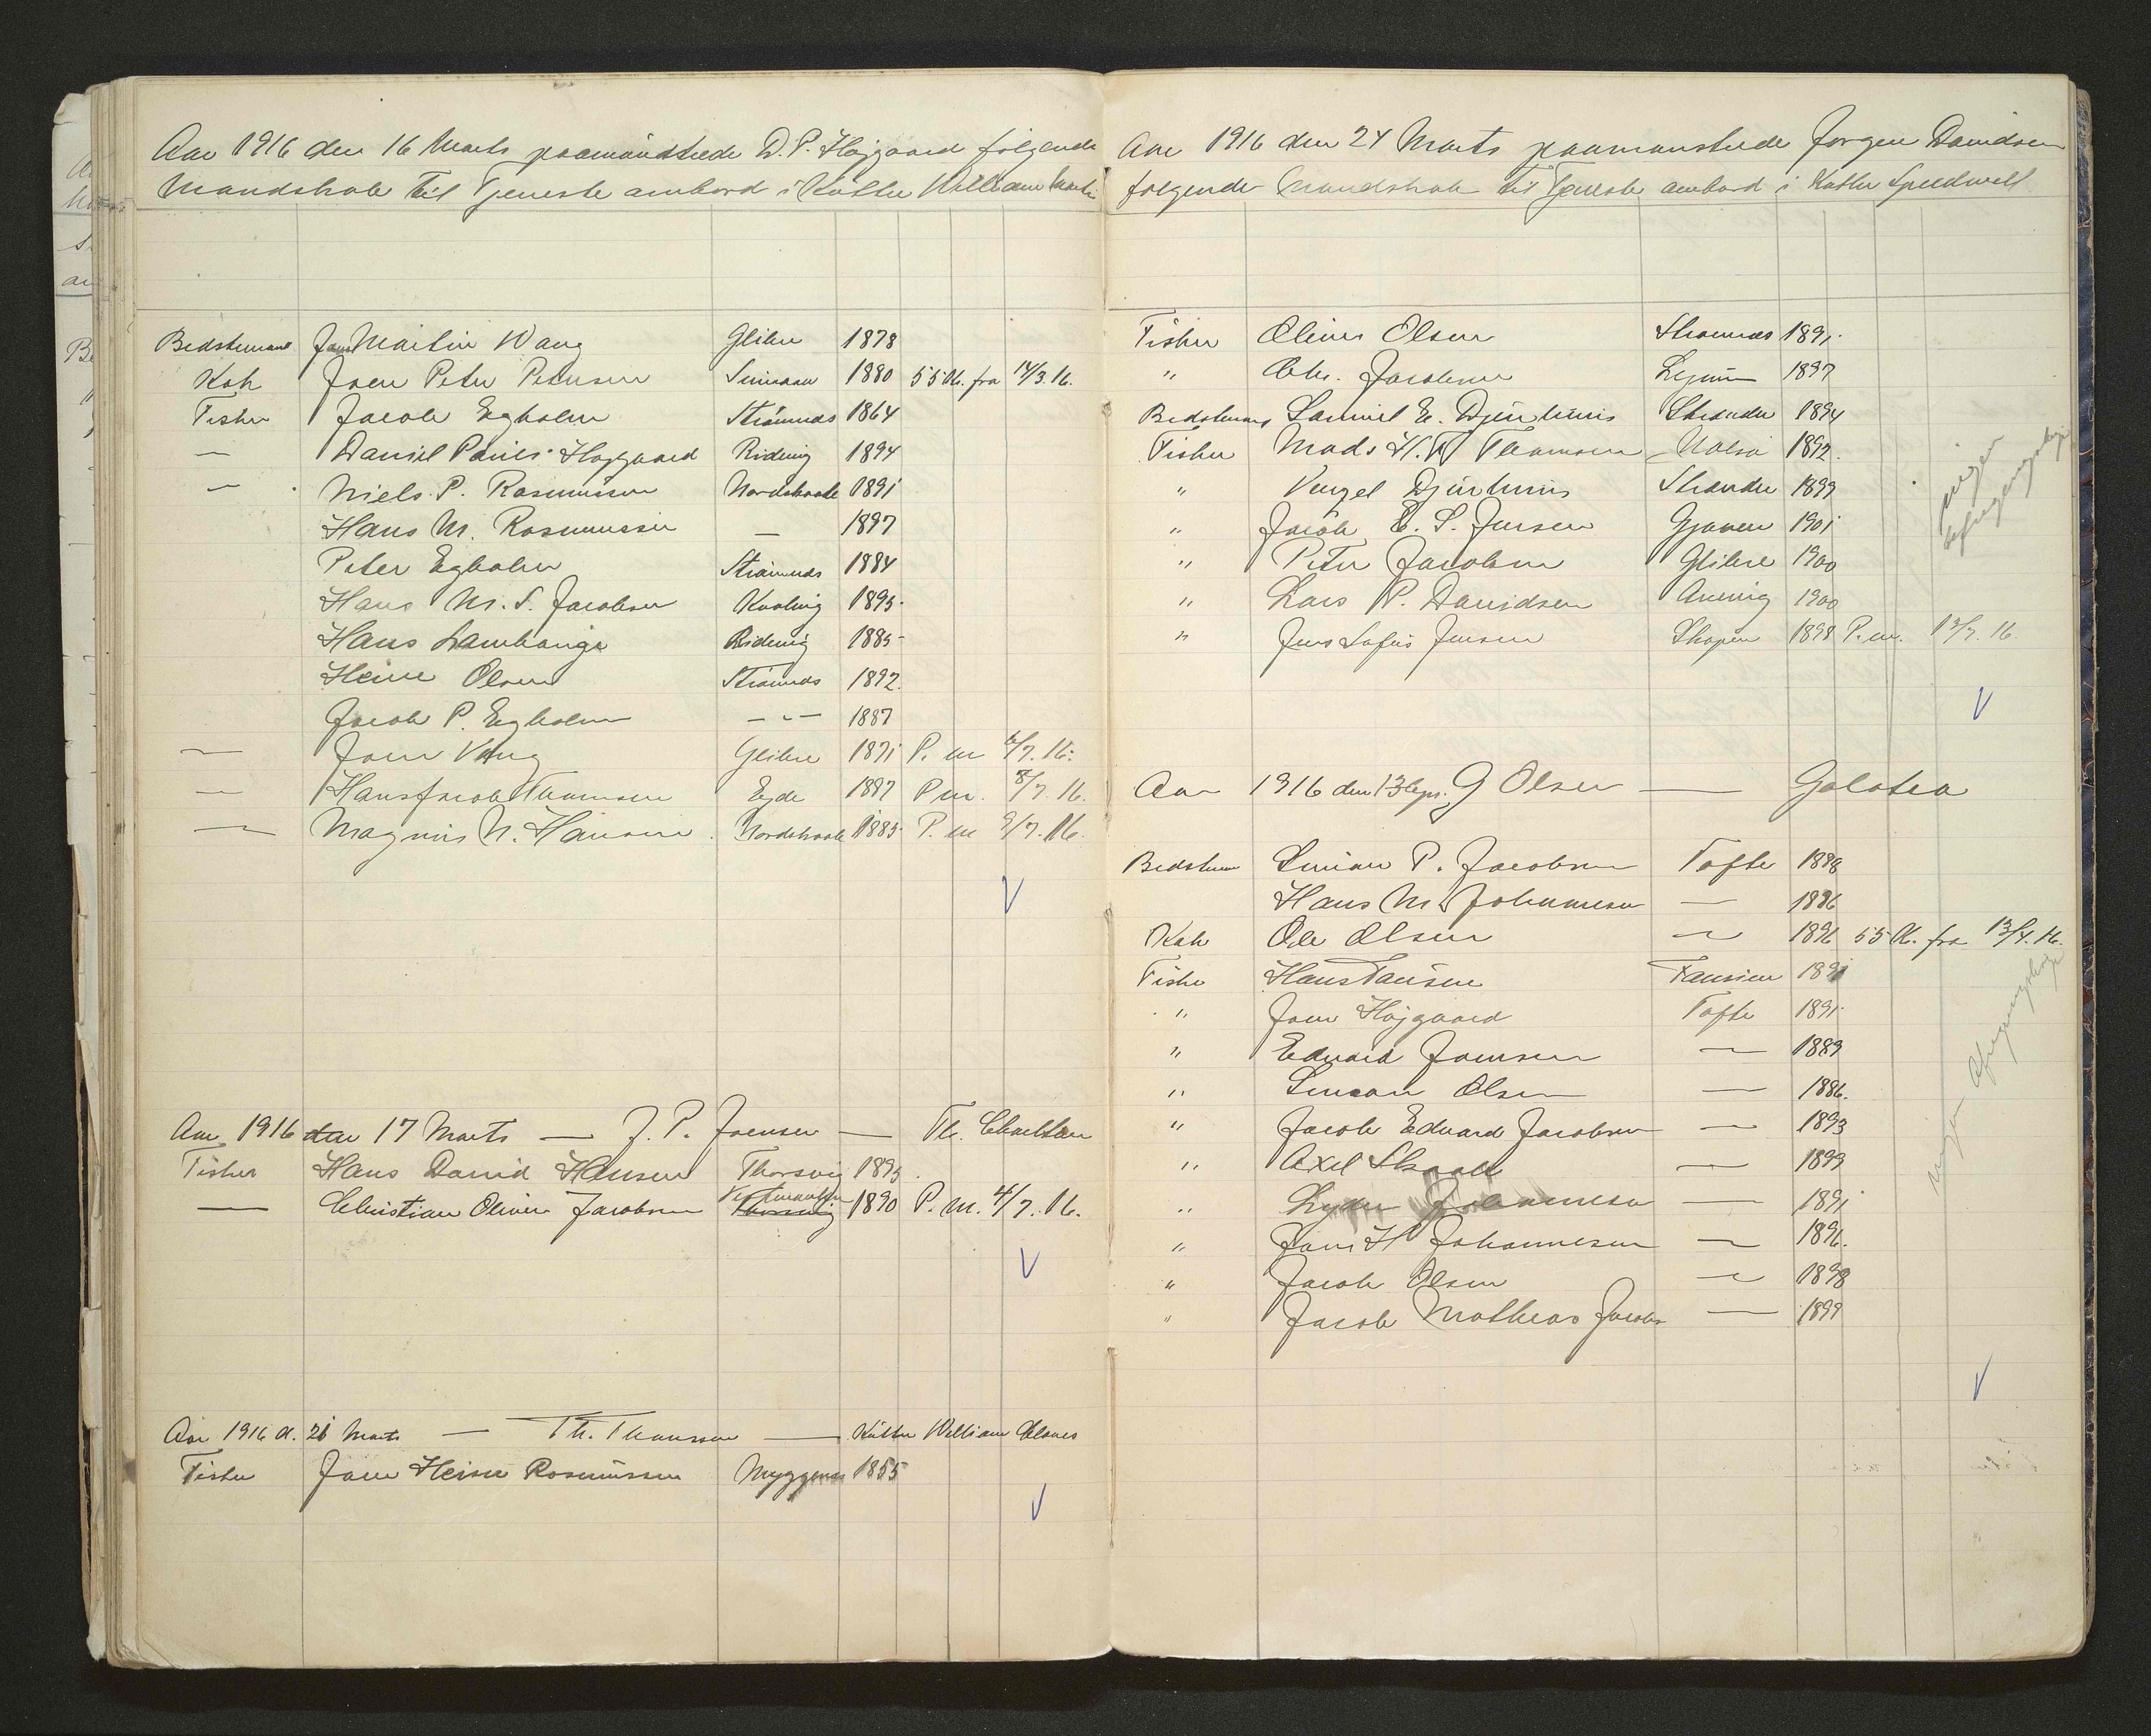 Aar 1916 den 16 Marts paamönstrede D. P. Højgaard følgende
Mandskab til Tjeneste ombord i Kutter William Martin
Bedstemand Joen Martin Wang Glibre 1878
Kok Joen Peter Petersen Sumbø 1880 55 Kr. fra 14/3.16.
Fisker Jacob Egholm Strømnæs 1864
— Daniel Paulis Højgaard Ridevig 1894
— Niels P. Rasmussen Nordskaale 1891
Hans M. Rasmussen — 1897
Peter Egholm Strømnæs 1884
Hans M. S. Jacobsen Kvalvig 1895
Hans Lambanige Ridevig 1885
Heine Olsen Strømnæs 1892
Jacob P. Egholm — " — 1887
— Joen Wang Glibre 1871 P. m 6/7. 16.
— Hans Jacob Thomsen Ejde 1887 P m. 8/7. 16.
— Magnus N. Hansen Nordskaale 1885 P. m 9/7. 16.
Aar 1916 den 17 Marts — J. P. Joensen — Th. Charlton
Fisker Hans David Hansen Thorsvig 1895
— Christian Oliver Jacobsen Vestmanhavn 1890 P. m. 4/7. 16.
Aar 1916 d. 21 Marts — Th. Thomsen — Kutter William Clowes
Fisker Joen Heine Rasmussen Myggenæs 1855
Aar 1916 den 24 Marts paamønstrede Jørgen Davidsen
følgende Mandskab til Tjeneste ombord i Kutter Speedwell
Fisker Oliver Olsen Strømnæs 1891
" Chr. Jacobsen Lejnum 1897
Bedstemand Samuel E. Djurhuus Strander 1894
Fisker Mads H. W Thomsen Nolsø 1892
" Vensel Djurhuus Strander 1899
" Jacob E. S. Jensen Gjoveren 1901
" Peter Jacobsen Glibre 1900
" Lars P. Davidsen Anevig 1900
" Jens Sofus Jensen Skopen 1898 P. m. 13/7. 16.
ingen
Afregningsbog
Aar 1916 den 13 Apr. G Olsen — Galatea
Bedstem Simon P. Jacobsen Tofte 1888
Hans M. Johannesen — 1886
Kok Ole Olsen — 1896 55 Kr. fra 13/4. 16.
Fisker Hans Hansen Famien 1891
" Joen Højgaard Tofte 1891
" Edvard Joensen — 1889
" Simon Olsen — 1886.
" Jacob Edvard Jacobsen — 1893
" Axel Skaale — 1899
" Lyder Johannesen — 1891
" Jens H Johannesen — 1896.
" Jacob Olsen — 1898
" Jacob Mathias Jacobs — 1899
ingen Afregningsbog